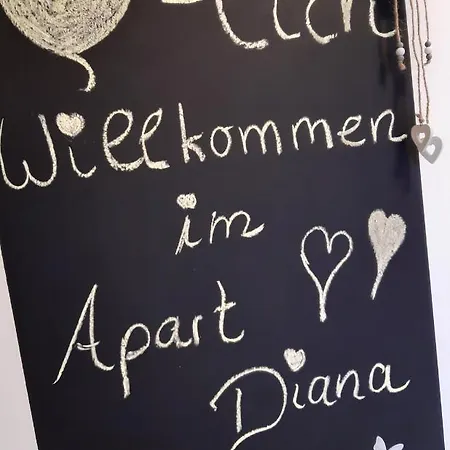 lich
Willkommen
im
Apart
Diana